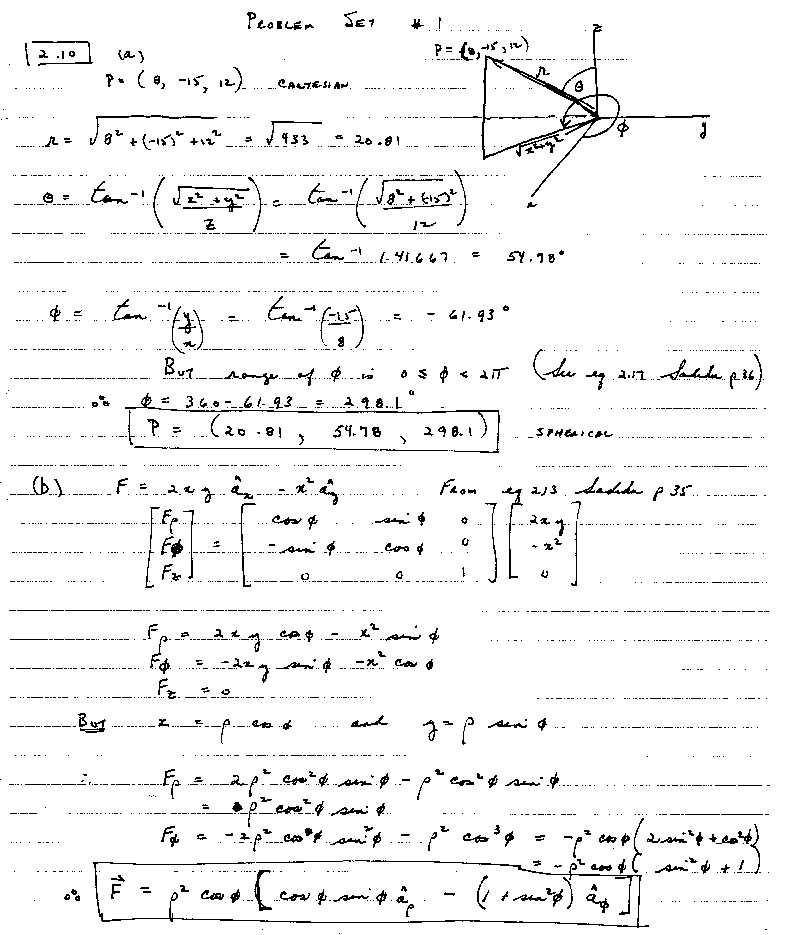 PROBLEM SET # 1
2.10 (a)
P = (8, -15, 12)
P = (8, -15, 12) CARTESIAN
z
r
θ
φ
y
√x²+y²
x
r = √8² + (-15)² + 12² = √433 = 20.81
θ = tan⁻¹ (√x² + y² / z) = tan⁻¹ (√8² + (-15)² / 12)
= tan⁻¹ 1.41667 = 54.78°
φ = tan⁻¹ (y/x) = tan⁻¹ (-15/8) = - 61.93°
BUT range of φ is 0 ≤ φ < 2π (See eq 2.17 Sadiku p 36)
∴ φ = 360 - 61.93 = 298.1°
P = (20.81, 54.78, 298.1) SPHERICAL
(b) F = 2xy âx - x² ây From eq 2.13 Sadiku p 35
[Fρ] = [cos φ sin φ 0] [2xy]
[Fφ] [- sin φ cos φ 0] [- x²]
[Fz] [0 0 1] [0]
Fρ = 2xy cos φ - x² sin φ
Fφ = -2xy sin φ - x² cos φ
Fz = 0
BUT x = ρ cos φ and y = ρ sin φ
∴ Fρ = 2ρ² cos²φ sin φ - ρ² cos²φ sin φ
= ρ² cos²φ sin φ
Fφ = -2ρ² cos φ sin²φ - ρ² cos³φ = -ρ² cos φ (2 sin²φ + cos²φ)
= -ρ² cos φ ( sin²φ + 1 )
∴ F⃗ = ρ² cos φ [ cos φ sin φ âρ - (1 + sin²φ) âφ ]